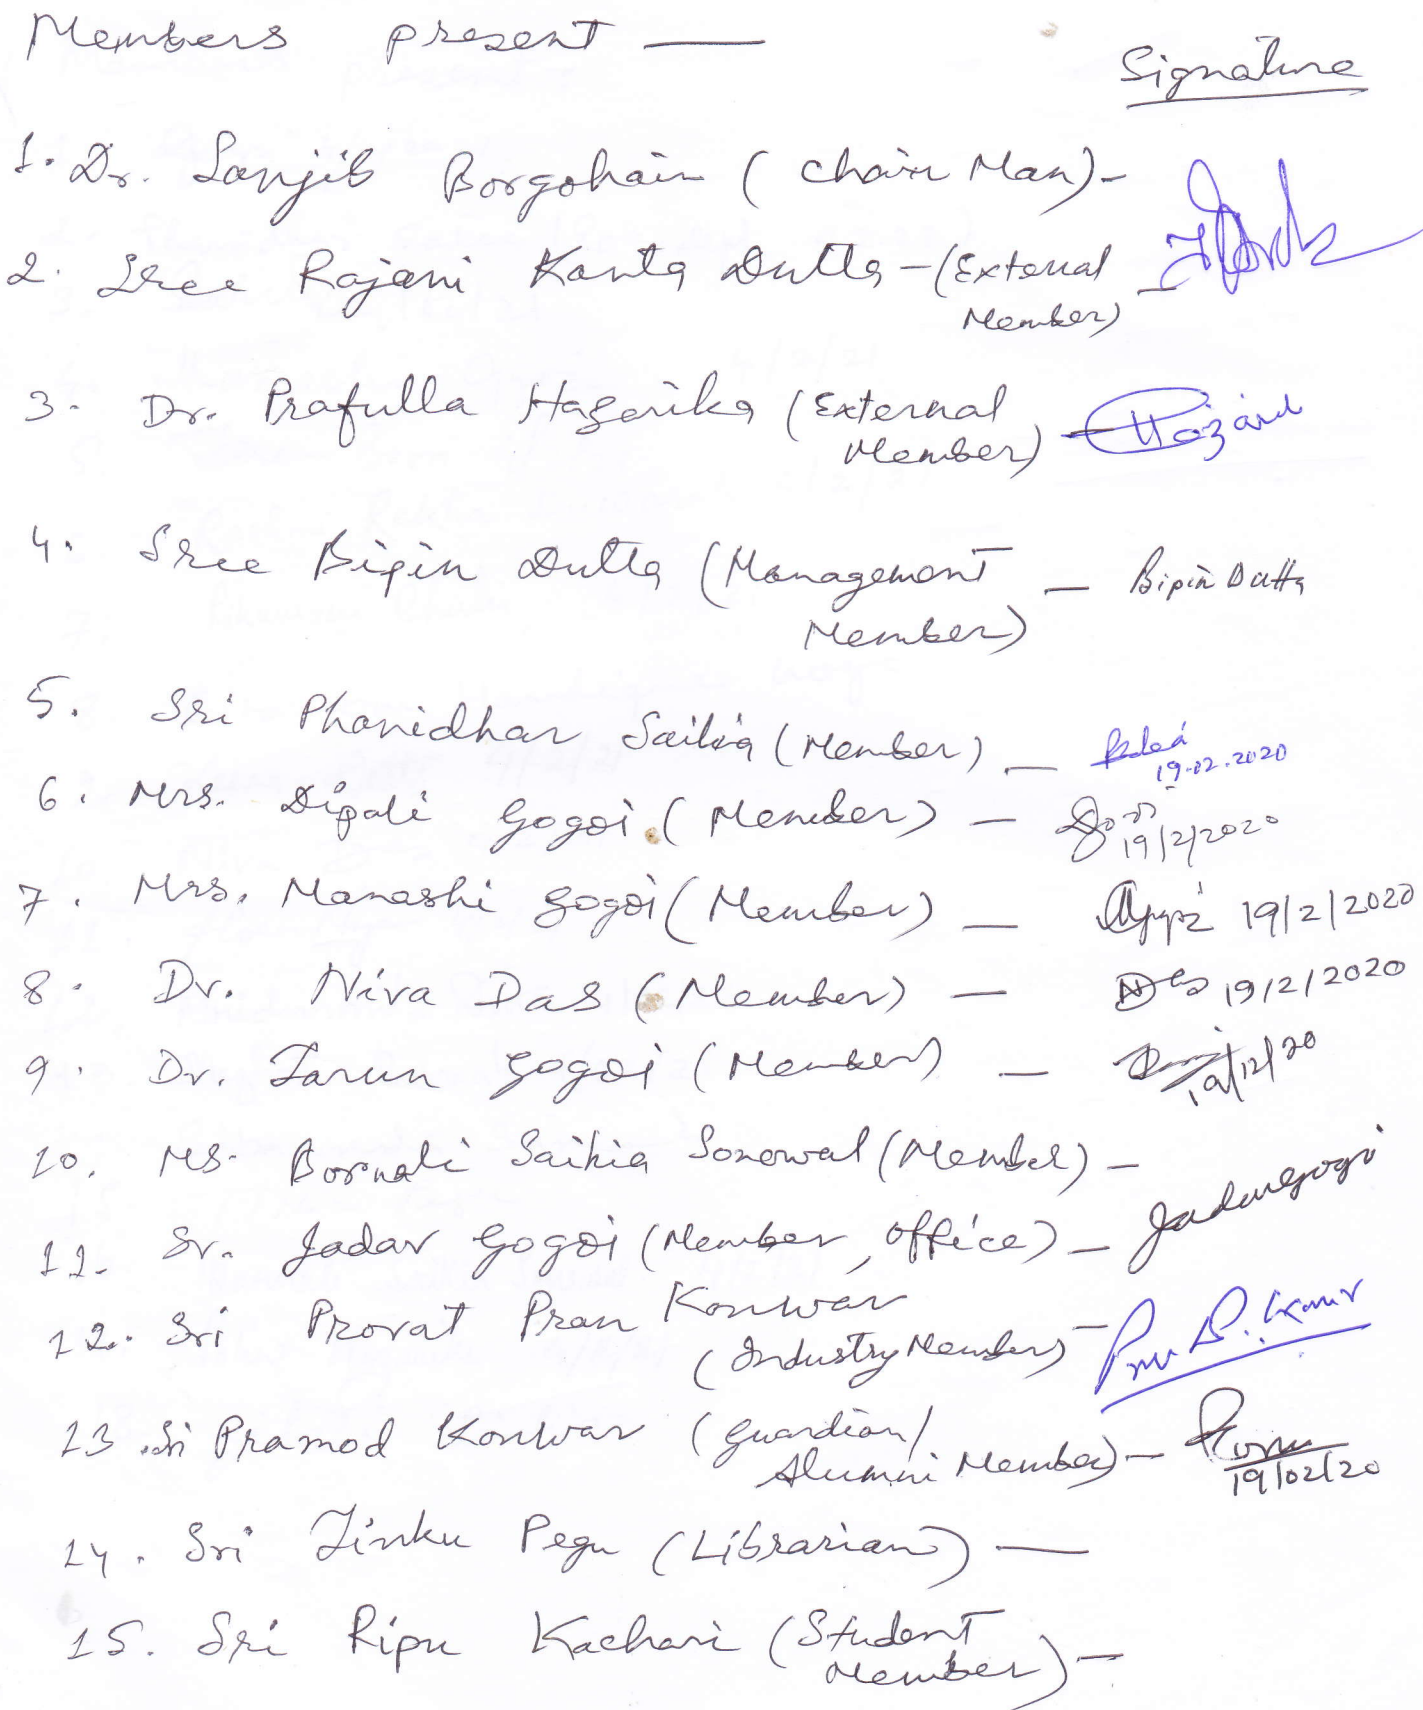 Members present —
Signature
1. Dr. Sanjib Borgohain (Chair Man) -
2. Sree Rajani Kanta Dutta - (External
Member) -
3. Dr. Prafulla Hazarika (External
Member) -
4. Sree Bipin Dutta (Management — Bipin Dutta
Member)
5. Sri Phanidhar Saikia (Member) —
19.02.2020
6. Mrs. Dipali Gogoi (Member) —
19/2/2020
7. Mrs. Manashi Gogoi (Member) — 19/2/2020
8. Dr. Niva Das (Member) — Das 19/2/2020
9. Dr. Tarun Gogoi (Member) —
19/12/20
10. Ms. Bornali Saikia Sonowal (Member) -
11. Sr. Jadav Gogoi (Member, Office) - Jadavgogoi
12. Sri Provat Pran Konwar
(Industry Member) -
13. Sri Pramod Konwar (Guardian/
Alumni Member) -
19/02/20
14. Sri Tinku Pegu (Librarian) —
15. Sri Ripu Kachari (Student
Member) -